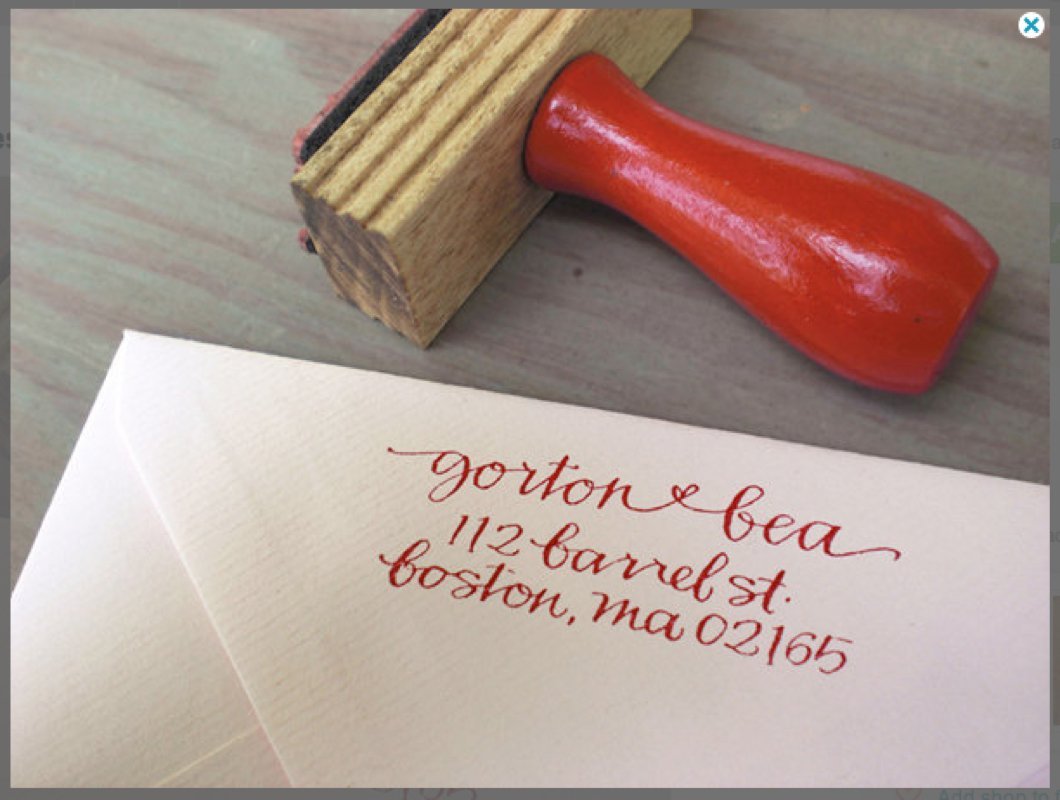 gorton & bea
112 barrel st.
boston, ma 02165
Add shop to